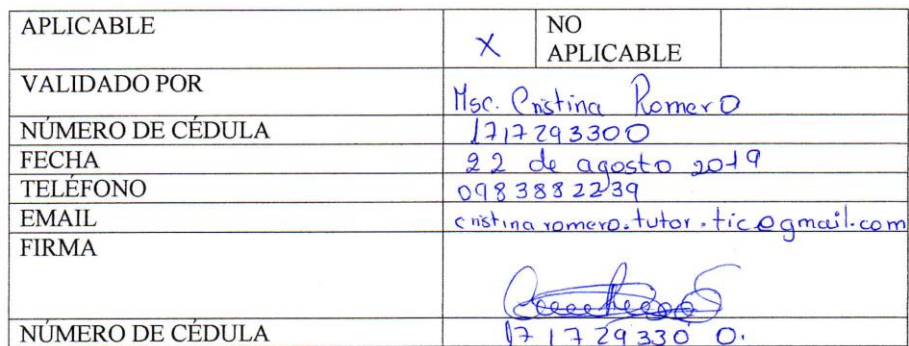 APLICABLE X NO APLICABLE
VALIDADO POR Msc. Cristina Romero
NÚMERO DE CÉDULA 1717293300
FECHA 22 de agosto 2019
TELÉFONO 0983882239
EMAIL cristinaromero.tutor.tic@gmail.com
FIRMA
NÚMERO DE CÉDULA 1717293300.